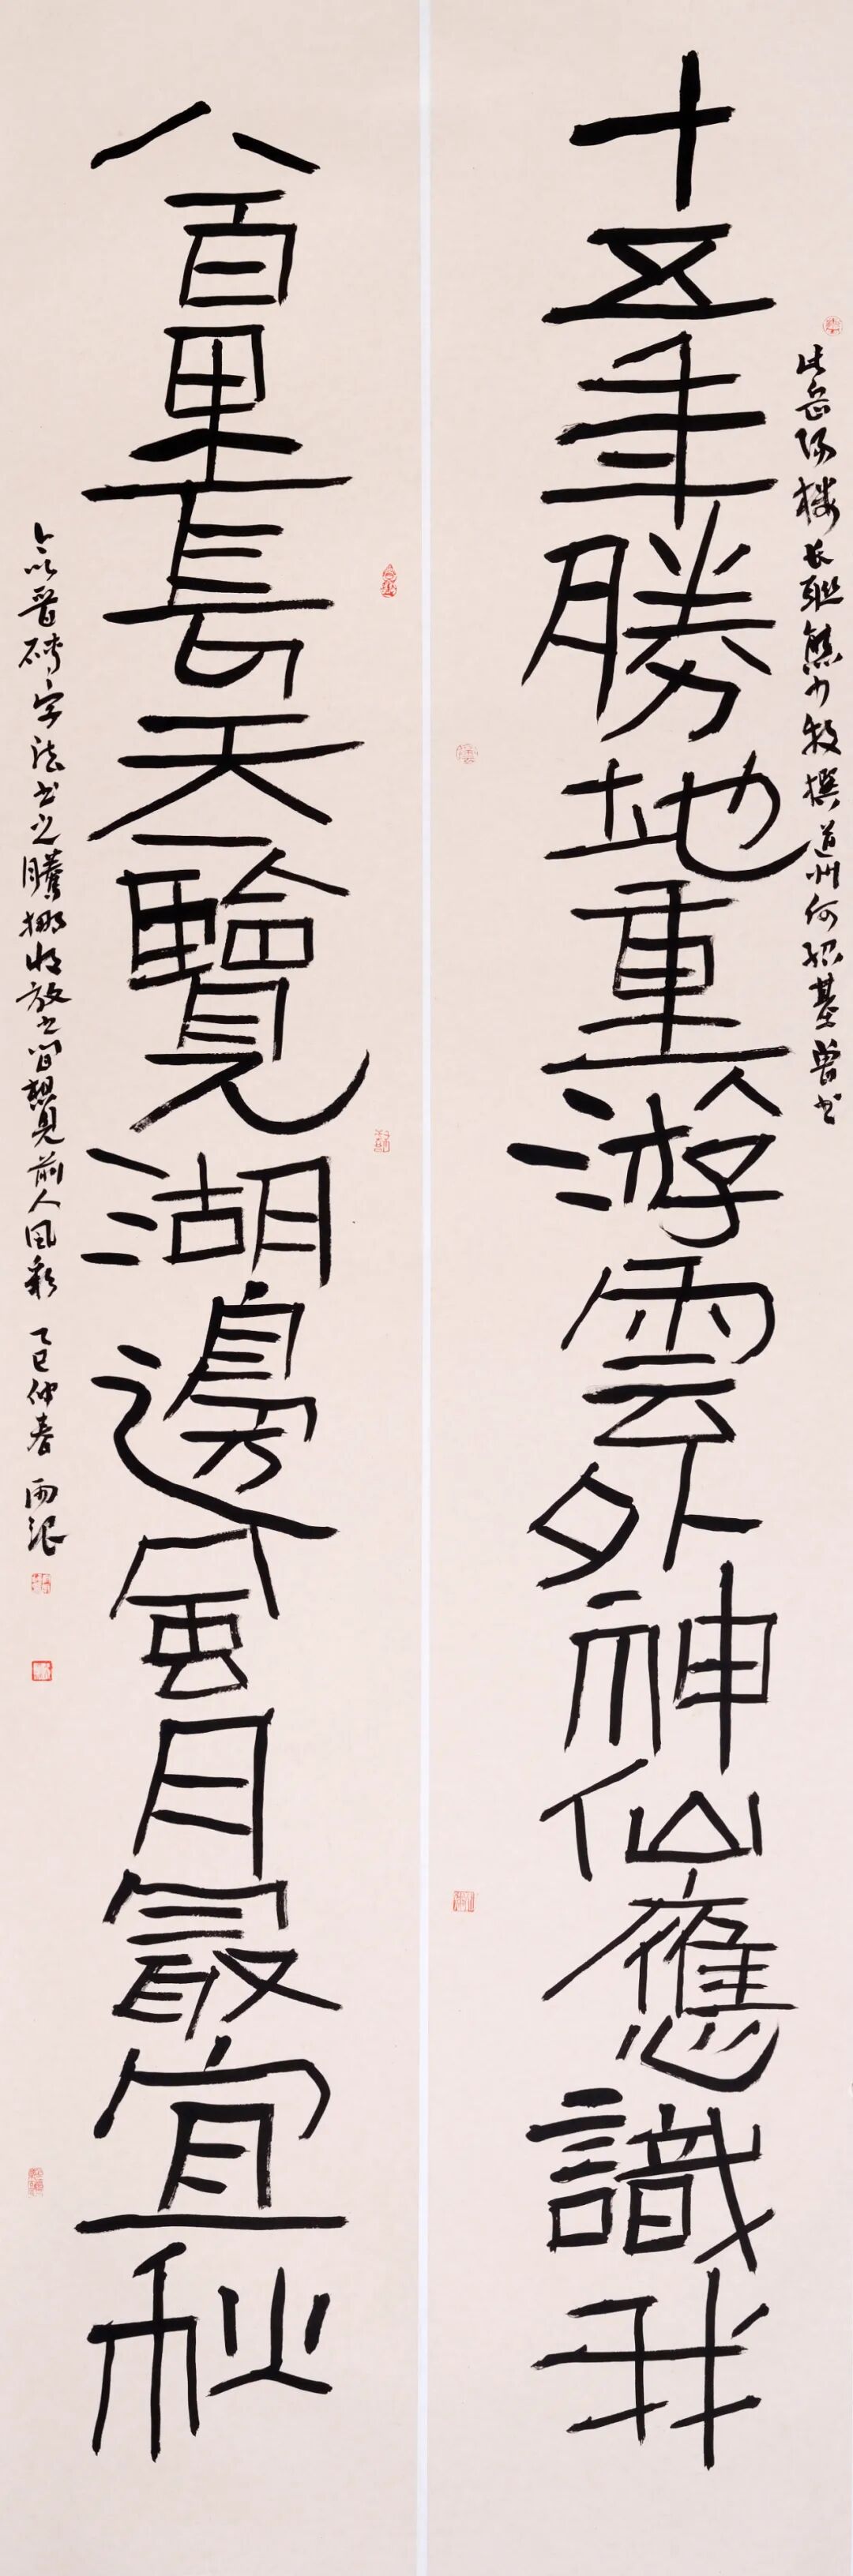 十五年勝地重游雲外神仙應識我
此岳陽樓長聯熊少牧撰道州何紹基曾书
八百里長天一覽湖邊風月最宜秋
今以晉磚字法书之騰挪收放之间想見前人風彩 乙巳仲春 雨浪